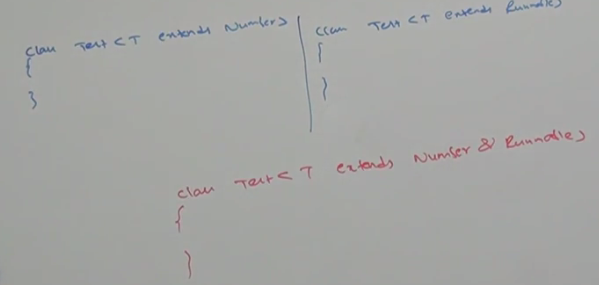 class Test<T extends Number>
{
}
class Test<T extends Runnable>
{
}
class Test<T extends Number & Runnable>
{
}